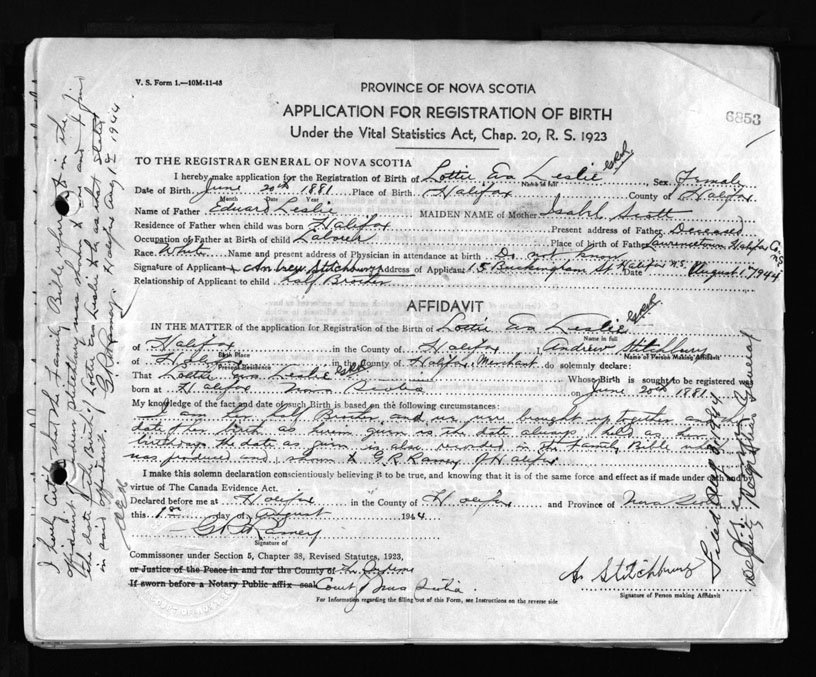 V. S. Form 1.—10M-11-43
PROVINCE OF NOVA SCOTIA
APPLICATION FOR REGISTRATION OF BIRTH
6853
Under the Vital Statistics Act, Chap. 20, R. S. 1923
TO THE REGISTRAR GENERAL OF NOVA SCOTIA
I hereby make application for the Registration of Birth of Lottie Eva Leslie Sex Female
Name in full
Date of Birth June 20th 1881 Place of Birth Halifax County of Halifax
Month Date Year
Name of Father Edward Leslie MAIDEN NAME of Mother Isabel Scott
Residence of Father when child was born Halifax Present address of Father Deceased
Occupation of Father at Birth of child Labourer Place of birth of Father Lawrencetown Halifax Co. N.S.
Race White Name and present address of Physician in attendance at birth Do not know
Signature of Applicant Andrew Stitchbury Address of Applicant 15 Buckingham St Halifax N.S. Date August 1st 1944
Relationship of Applicant to child Half Brother
AFFIDAVIT
IN THE MATTER of the application for Registration of the Birth of Lottie Eva Leslie
Name in full
of Halifax in the County of Halifax, I Andrew Stitchbury
Birth Place Name of Person Making Affidavit
of Halifax in the County of Halifax, Merchant do solemnly declare:
Present Residence
That Lottie Eva Leslie Whose Birth is sought to be registered was
born at Halifax Nova Scotia on June 20th 1881
My knowledge of the fact and date of such Birth is based on the following circumstances:
I am her half Brother and we were brought up together and
date of her birth as herein given is the date always held as her
birthday. the date as given is also recorded in the Family Bible
was produced and shown to G. R. Ramey of Halifax
I make this solemn declaration conscientiously believing it to be true, and knowing that it is of the same force and effect as if made under oath and by
virtue of The Canada Evidence Act.
Declared before me at Halifax in the County of Halifax and Province of Nova Scotia
this 1st day of August 1944
G. R. Ramey
Signature of
Commissioner under Section 5, Chapter 38, Revised Statutes, 1923,
or Justice of the Peace in and for the County of
If sworn before a Notary Public affix seal Court Nova Scotia
A. Stitchbury
Signature of Person making Affidavit
For Information regarding the filling out of this Form, see Instructions on the reverse side
I hereby certify that the Family Bible referred to in the
affidavit of Andrew Stitchbury was shown to me and I find
the date of Birth of Lottie Eva Leslie to be as that stated
in said affidavit. G. R. Ramey. Halifax Aug 1st 1944
Filed Aug 1944
Deputy Registrar General